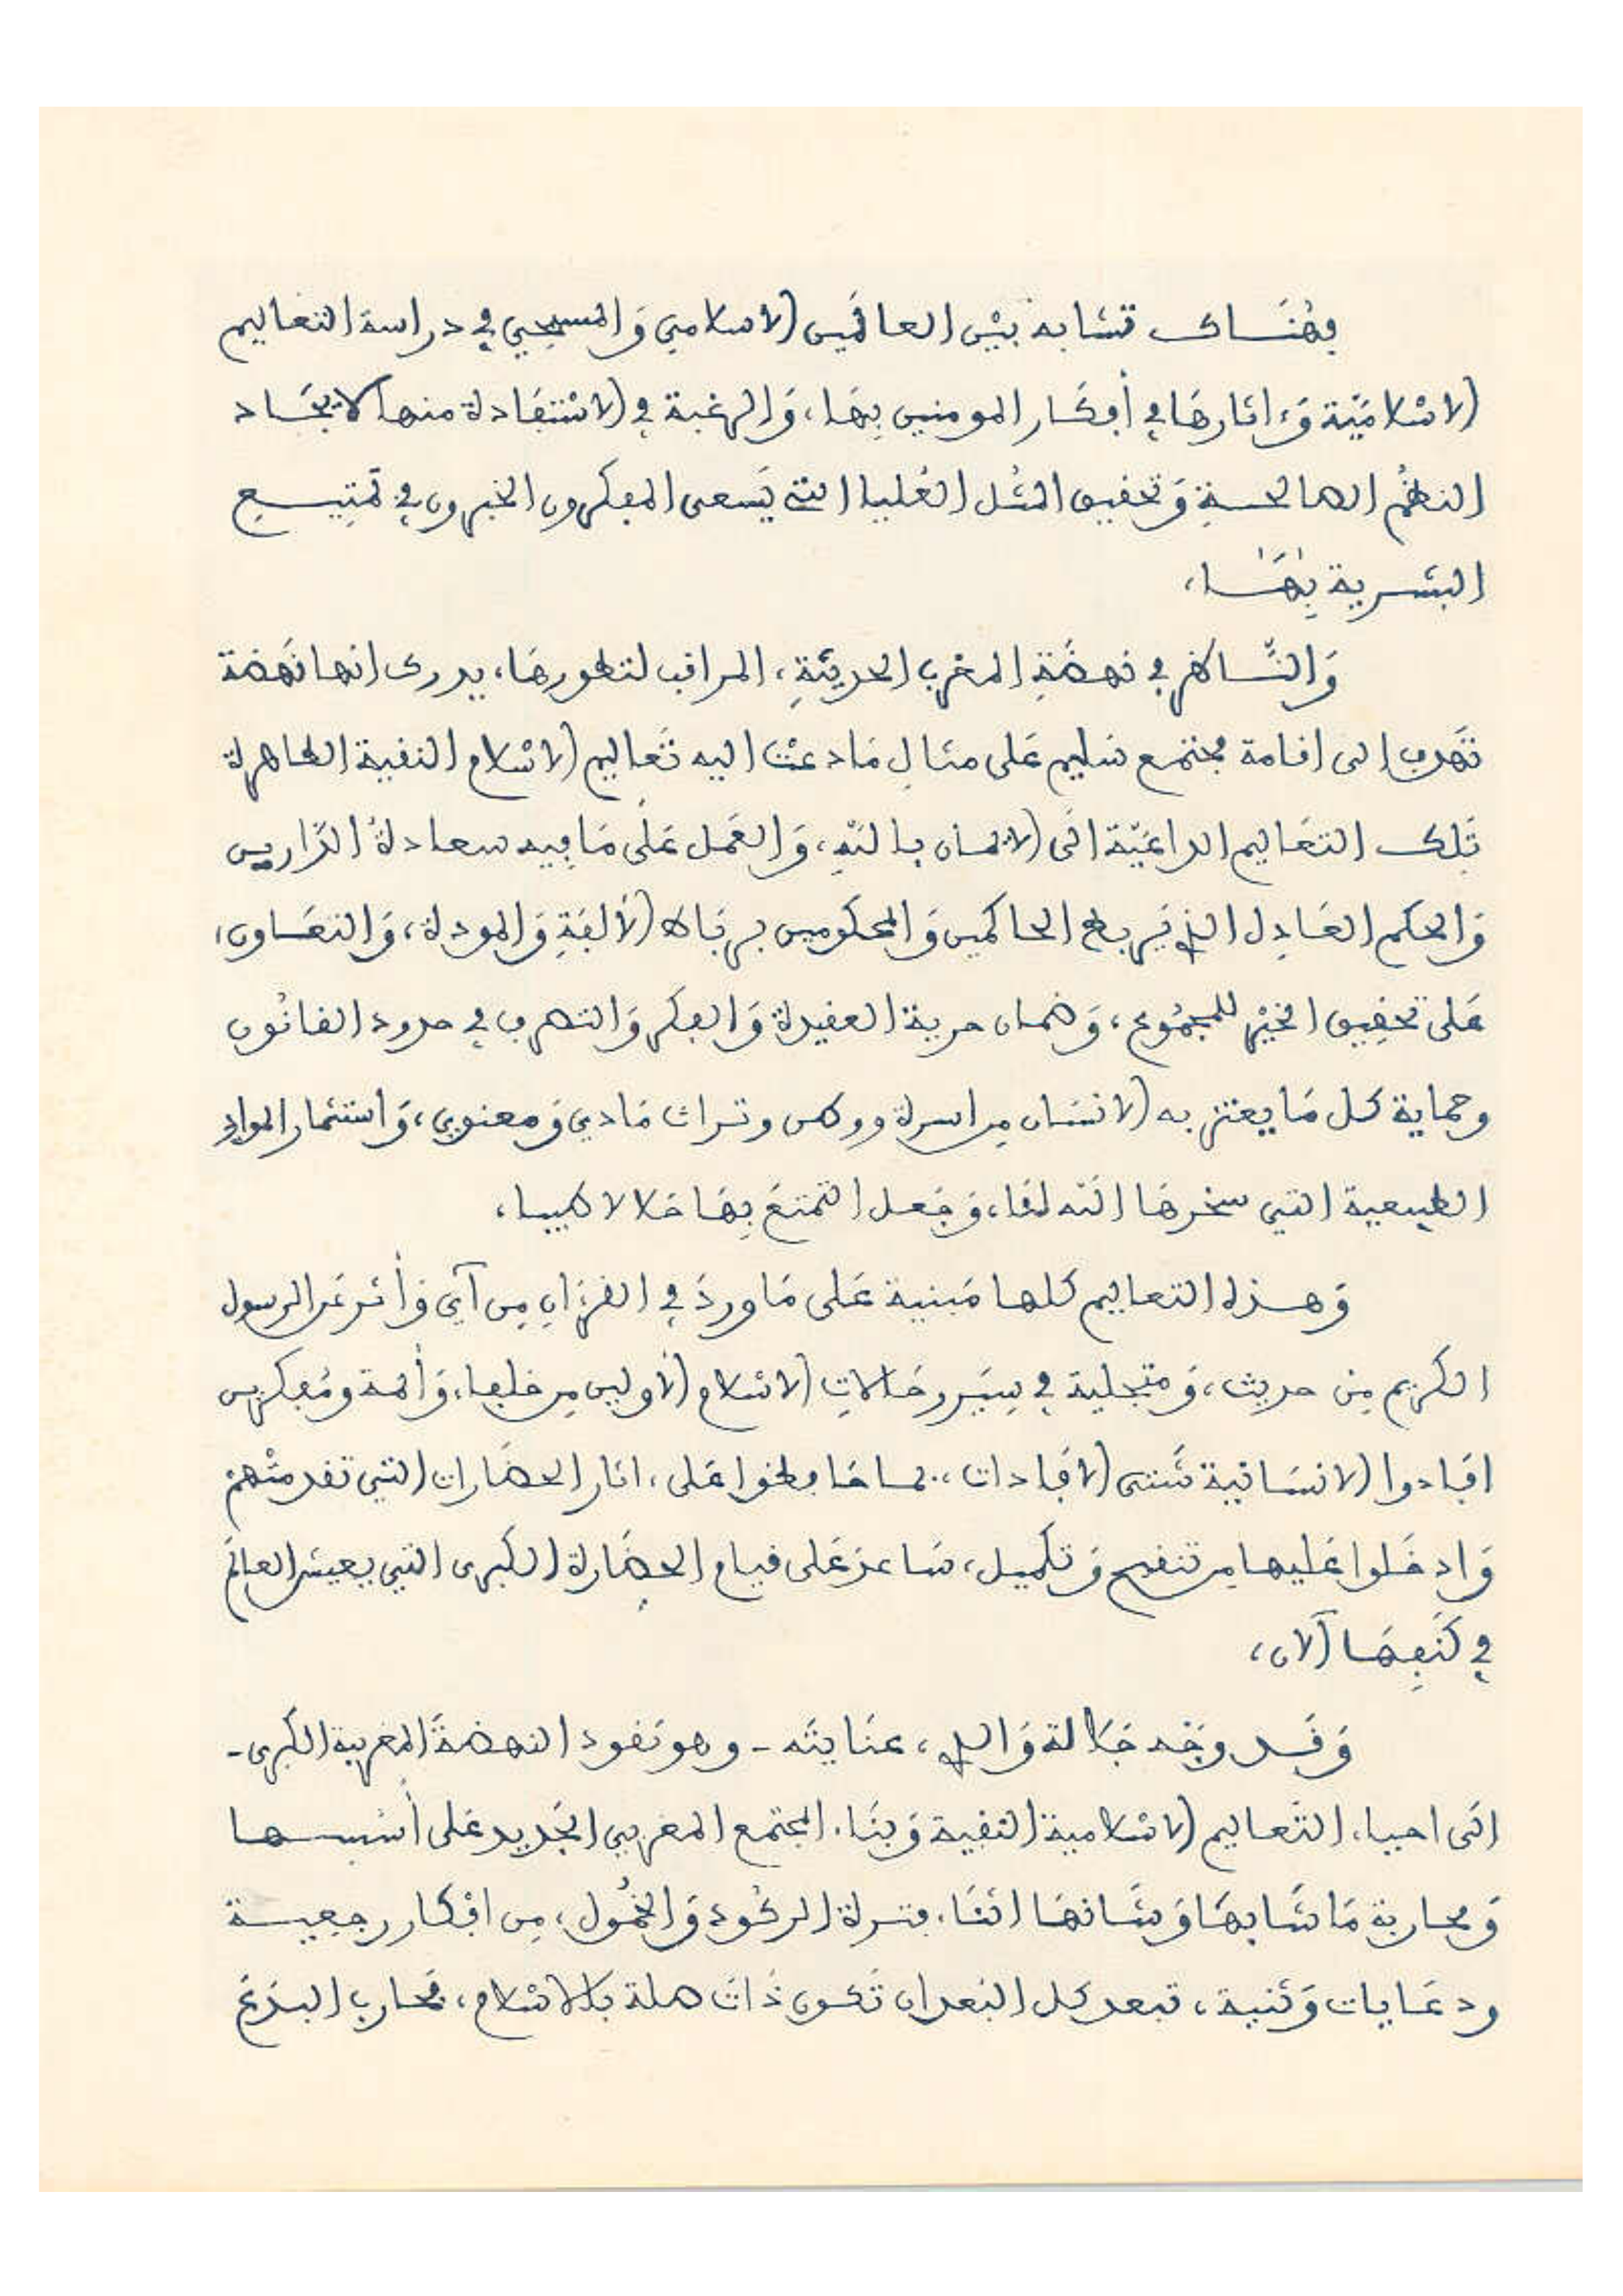 فهُنَـاك تشابه بيْن العالَمين الاسلامي وَالمسيحي في دراسة التعاليم
الاسْلاميّة وَءاثارهَا في أفكَار المومنين بِهَا، وَالرغبة في الاسْتفَادة منها لايجَـاد
النظُم الصالحـةِ وَتحقيق المثُل العُليا التي يَسعى المفكرون الخيرون في تمتِيـع
البشـرية بِهَـا،
وَالنَّـاظر في نهضَةِ المغْرب الحديثَةِ، المراقب لتطورهَا، يدرى انها نَهضة
تَهدف الى اقامة مجتمع سَليم عَلى مثالِ مَادعتْ اليه تَعاليم الاسْلام النقية الطاهرة
تِلك التعَاليم الداعيّة الَى الايمـان بالله، وَالعَمل عَلَى مَافيه سعادةُ الدَّارين
وَالحكم العَادِل الذي يَربط الحاكمين وَالمحكومين برِبَاط الأُلفَةِ وَالمودة، وَالتعَـاون،
عَلى تحقِيق الخيْر للمجمُوع، وَضمان حرية العقيدة وَالفِكر وَالتصرف في حدود القانُون
وحماية كل مَايعتز به الانسَـان مِن اسرة ووطن وتراث مَادي وَمعنوي، وَاستثمار المواد
الطبيعية التي سخرهَا الله لنَا، وَجَعل التمتعَ بِهَا حَلالا طيبا،
وَهـذه التعاليم كَلها مَبنية عَلى مَاوردَ في القرءَانِ مِن آي وَأُثر عَن الرسول
الكريم مِن حديث، وَمتجلية في سِيَر رجَالاتِ الاسْلام الأولين مِن خلفاء، وَأيمة ومُفكرين
افَادوا الانسَانية شَتى الافَادات، بمـا حَافظوا عَلى ءاثار الحضَارات التي تقدمتْهمْ
وَادخَلوا عَليها مِن تنقيح وَتكميل، سَاعدَ عَلى قيام الحضَارة الكبرى التي يعيش العالمَ
في كَنَفِهَـا الآن،
وَقَـد وجَّه جَلالة وَالدي، عنَايتَه - وهو يَقود النهضةَ المغربية الكبرى -
الَى احياء التَّعاليم الاسْلامية النقية وَبنَاء المجتمع المغربي الجَديد عَلى أُسُسـها
وَمحاربة مَاشَابهَا وَشَانهَا اثنَاء فتـرة الركُود وَالخمُول، مِن افْكار رجعيـة
ودعَايات وَثنية، تبعد كل البُعد ان تَكون ذَاتَ صلة بالاسْلام، فحَارب البـدَعَ